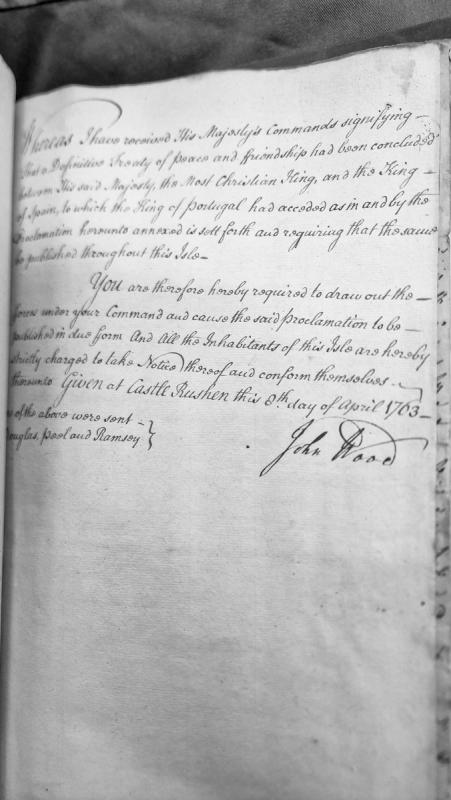 Whereas I have received His Majesty's Commands signifying –
that a Definitive Treaty of peace and friendship had been concluded
between His said Majesty, the Most Christian King, and the King –
of Spain, to which the King of Portugal had acceded as in and by the
Proclamation hereunto annexed is sett forth and requiring that the same
be published throughout this Isle –
You are therefore hereby required to draw out the –
forces under your Command and cause the said Proclamation to be –
published in due form And All the Inhabitants of this Isle are hereby
strictly charged to take Notice thereof and conform themselves –
thereunto Given at Castle Rushen this 8th. day of April 1763 –
of the above were sent –
Douglas, peel and Ramsey
John Wood